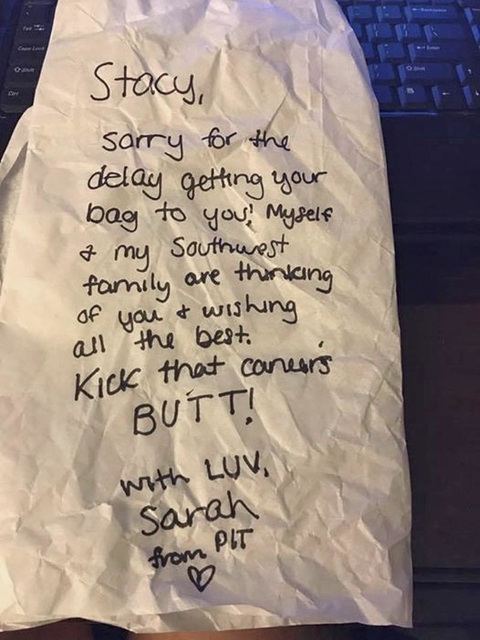 Stacy,
sorry for the
delay getting your
bag to you! Myself
& my Southwest
family are thinking
of you & wishing
all the best.
Kick that cancer's
BUTT!
with LUV,
Sarah
from PIT
♡